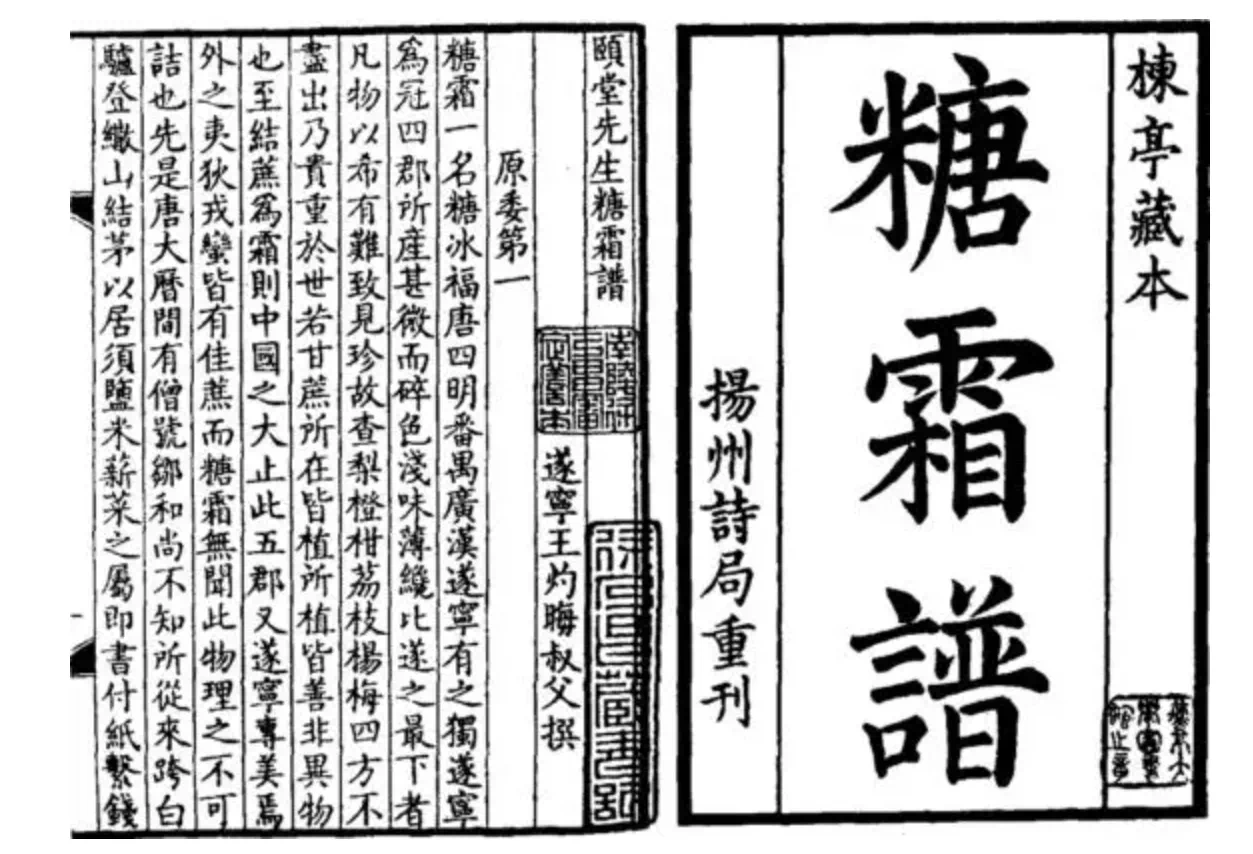 楝亭藏本
糖霜譜
揚州詩局重刊
頤堂先生糖霜譜
遂寧王灼晦叔父撰
原委第一
糖霜一名糖冰福唐四明番禺廣漢遂寧有之獨遂寧
為冠四郡所產甚微而碎色淺味薄纔比遂之最下者
凡物以希有難致見珍故查梨橙柑荔枝楊梅四方不
盡出乃貴重於世若甘蔗所在皆植所植皆善非異物
也至結蔗為霜則中國之大止此五郡又遂寧專美焉
外之夷狄戎蠻皆有佳蔗而糖霜無聞此物理之不可
詰也先是唐大曆間有僧號鄒和尚不知所從來跨白
驢登繖山結茅以居須鹽米薪菜之屬即書付紙繫錢